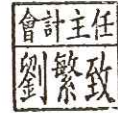 會計主任
劉繁致